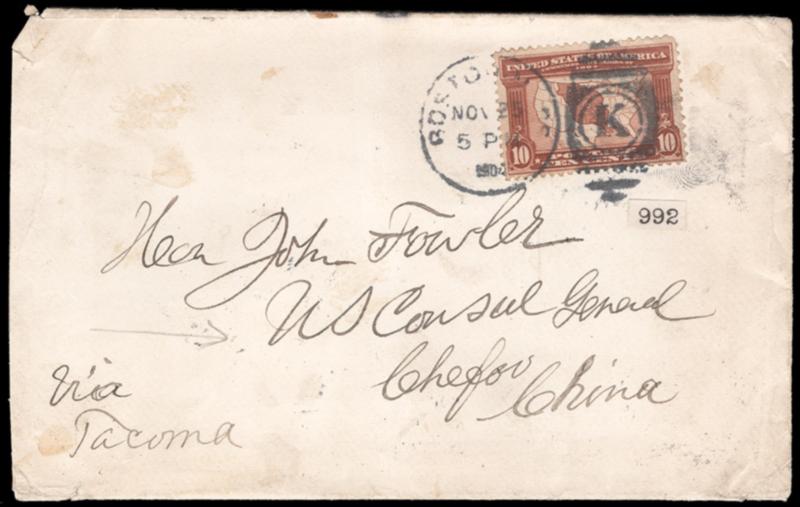 UNITED STATES OF AMERICA
BOSTON
NOV
5 PM
1904
K
10
10
992
Hon John Fowler
US Consul General
Chefoo
China
Via
Tacoma